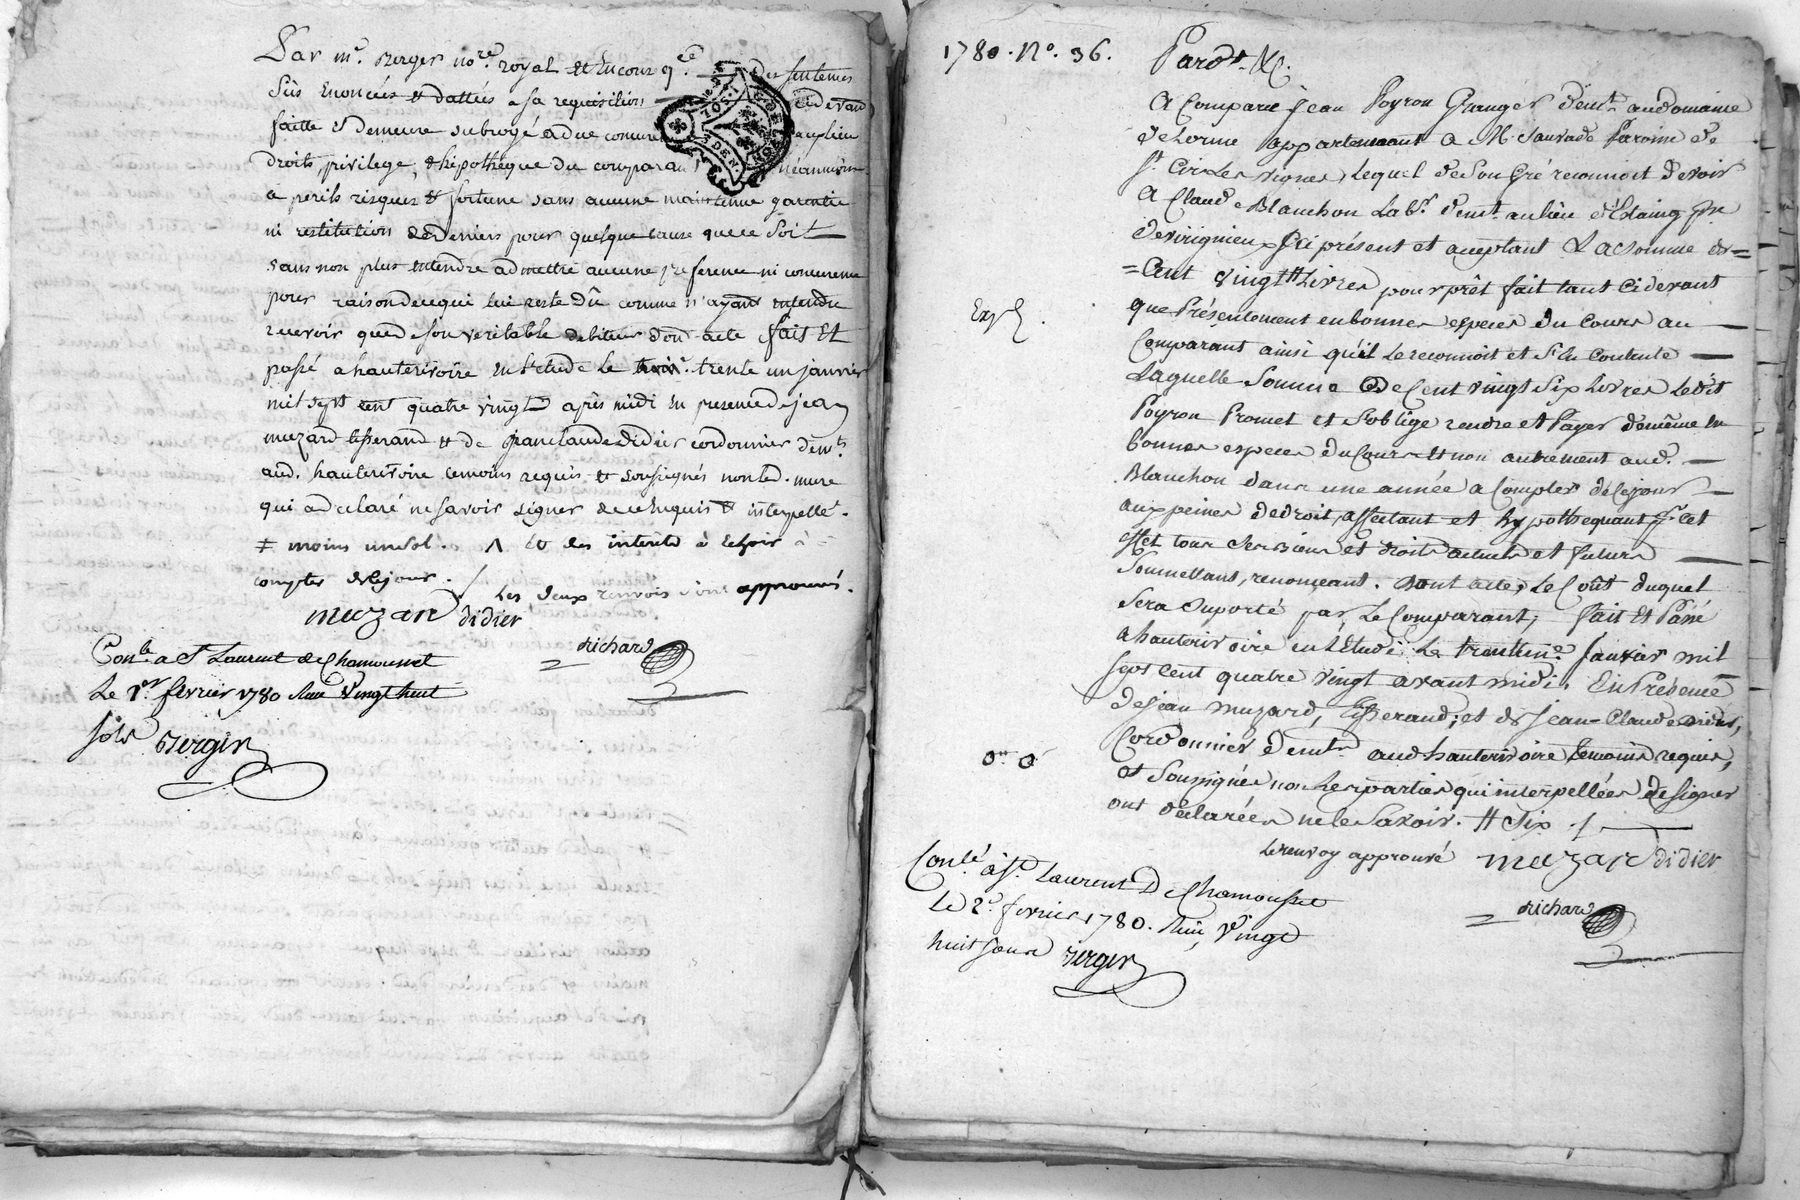 Par m.e Berger no.re royal et Encour q.ce des sentences
Sus Enoncées et dattées a sa requisition
faitte et demeure subrogé a due concur au lieu
droits, privilege, et hipothéque du comparant néanmoins
a perils risques et fortune sans aucune maintenue garentie
ni restitution de deniers pour quelque cause que ce soit
sans non plus entendre admettre aucune preference ni concurence
pour raison de ce qui lui reste dû comme n'ayant entendu
recevoir que de son veritable debiteur dont acte fait Et
passé a hauterivoire En l'etude le trente un janvier
mil sept cent quatre vingt après midi En presence de jean
muzard tisserand et de jean claude didier cordonnier dem.ts
aud. hauterivoire temoins requis et soussignés non led. mure
qui a declaré ne savoir signer de ce Enquis et interpellé.
‡ moins un sol. Λ et des interets à Echoir à
compter de ce jour. / Les deux renvois sont approuvés.
muzard didier
richard
Con.lé a S.t Laurent de Chamousset
Le 1.er fevrier 1780 Recu Vingt huit
sols Berger
1780. N.o 36.
Pard.t &c.
A Comparu Jean Poyron Granger dem.t au domaine
de Lorme appartenant a M. Sauvade Paroisse de
S.t Cir Les vignes, Lequel de son Gré reconnoit devoir
A Claude Blanchon Lab.r dem.t au lieu d'Estaing p.sse
de virignieux Ici présent et acceptant La somme de =
= Cent vingt ⧺ Livres pour prêt fait tant cidevant
que Présentement en bonnes especes du Cours au
Comparant ainsi qu'il le reconnoit et s'en contente
Laquelle Somme de Cent vingt six Livres Ledit
Poyron Promet et s'oblige rendre et Payer de même en
bonnes especes du Cours et non autrement aud.
Blanchon dans une année a Compter de Ce jour
aux peines de droit, affectant et hypothequant p.r cet
effet tous ses biens et droits actuels et futurs
Soumettant, renonceant. Dont acte, Le Coût duquel
sera suporté par Le Comparant; fait Et Passé
a hauterivoire en L'Etude Le trentun.e Janvier mil
sept cent quatre vingt avant midi. En Présence
de Jean muzard, Tisserand, et de Jean-Claude didier,
Cordonnier dem.ts aud hauterivoire temoins requis,
et Soussignés non Les parties qui interpellées de signer
ont déclarées ne le Savoir. ⧺ Six ./.
Le renvoy approuvé muzard didier
richard
Exp.é
Con.lé à S.t Laurent De Chamousset
Le 2.e fevrier 1780. Recu Vingt
huit sous Berger